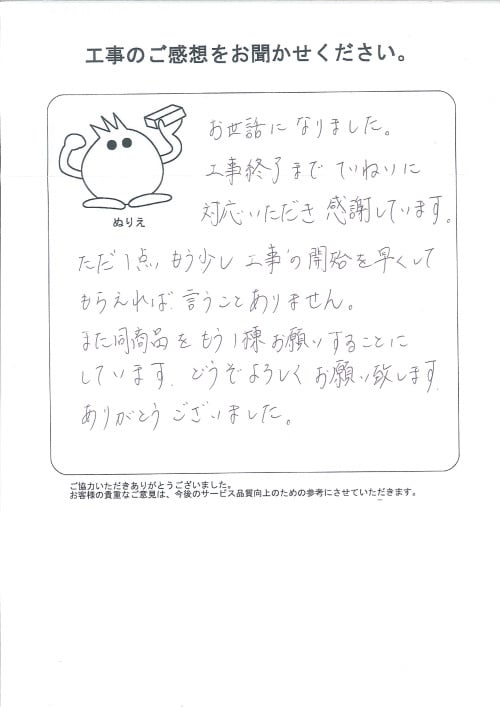 工事のご感想をお聞かせください。
お世話になりました。
工事終了までていねいに
対応いただき感謝しています。
ぬりえ
ただ1点、もう少し工事の開始を早くして
もらえれば言うことありません。
また同商品をもう1棟お願いすることに
しています。どうぞよろしくお願い致します。
ありがとうございました。
ご協力いただきありがとうございました。
お客様の貴重なご意見は、今後のサービス品質向上のための参考にさせていただきます。